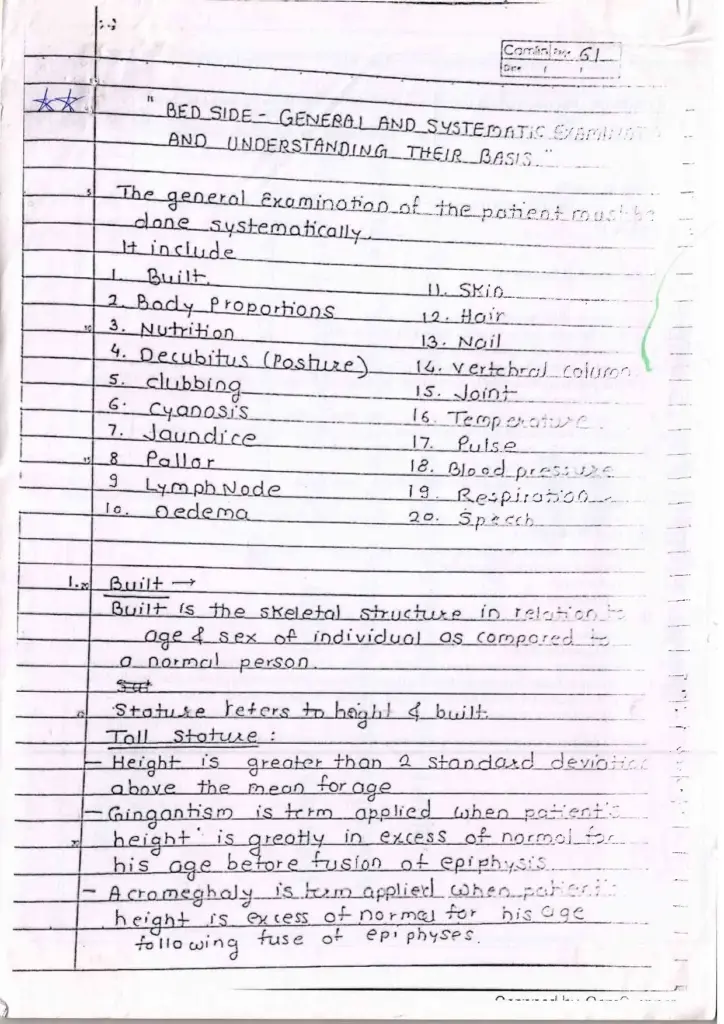 Camlin Page 61
Date / /
" BED SIDE - GENERAL AND SYSTEMATIC EXAMINAT
AND UNDERSTANDING THEIR BASIS."
The general Examination of the patient must be
done systematically.
It include
1. Built.
2. Body Proportions
3. Nutrition
4. Decubitus (Posture)
5. clubbing
6. Cyanosis
7. Jaundice
8 Pallor
9 Lymph Node
10. Oedema
11. Skin
12. Hair
13. Nail
14. Vertebral column
15. Joint
16. Temperature
17. Pulse
18. Blood pressure
19. Respiration
20. Speech
1. Built →
Built is the skeletal structure in relation to
age & sex of individual as compared to
a normal person.
Stature refers to height & built.
Tall Stature :
- Height is greater than 2 standard deviation
above the mean for age
- Gingantism is term applied when patient's
height is greatly in excess of normal for
his age before fusion of epiphysis
- Acromeghaly is term applied when patient's
height is excess of normal for his age
following fuse of epiphyses.